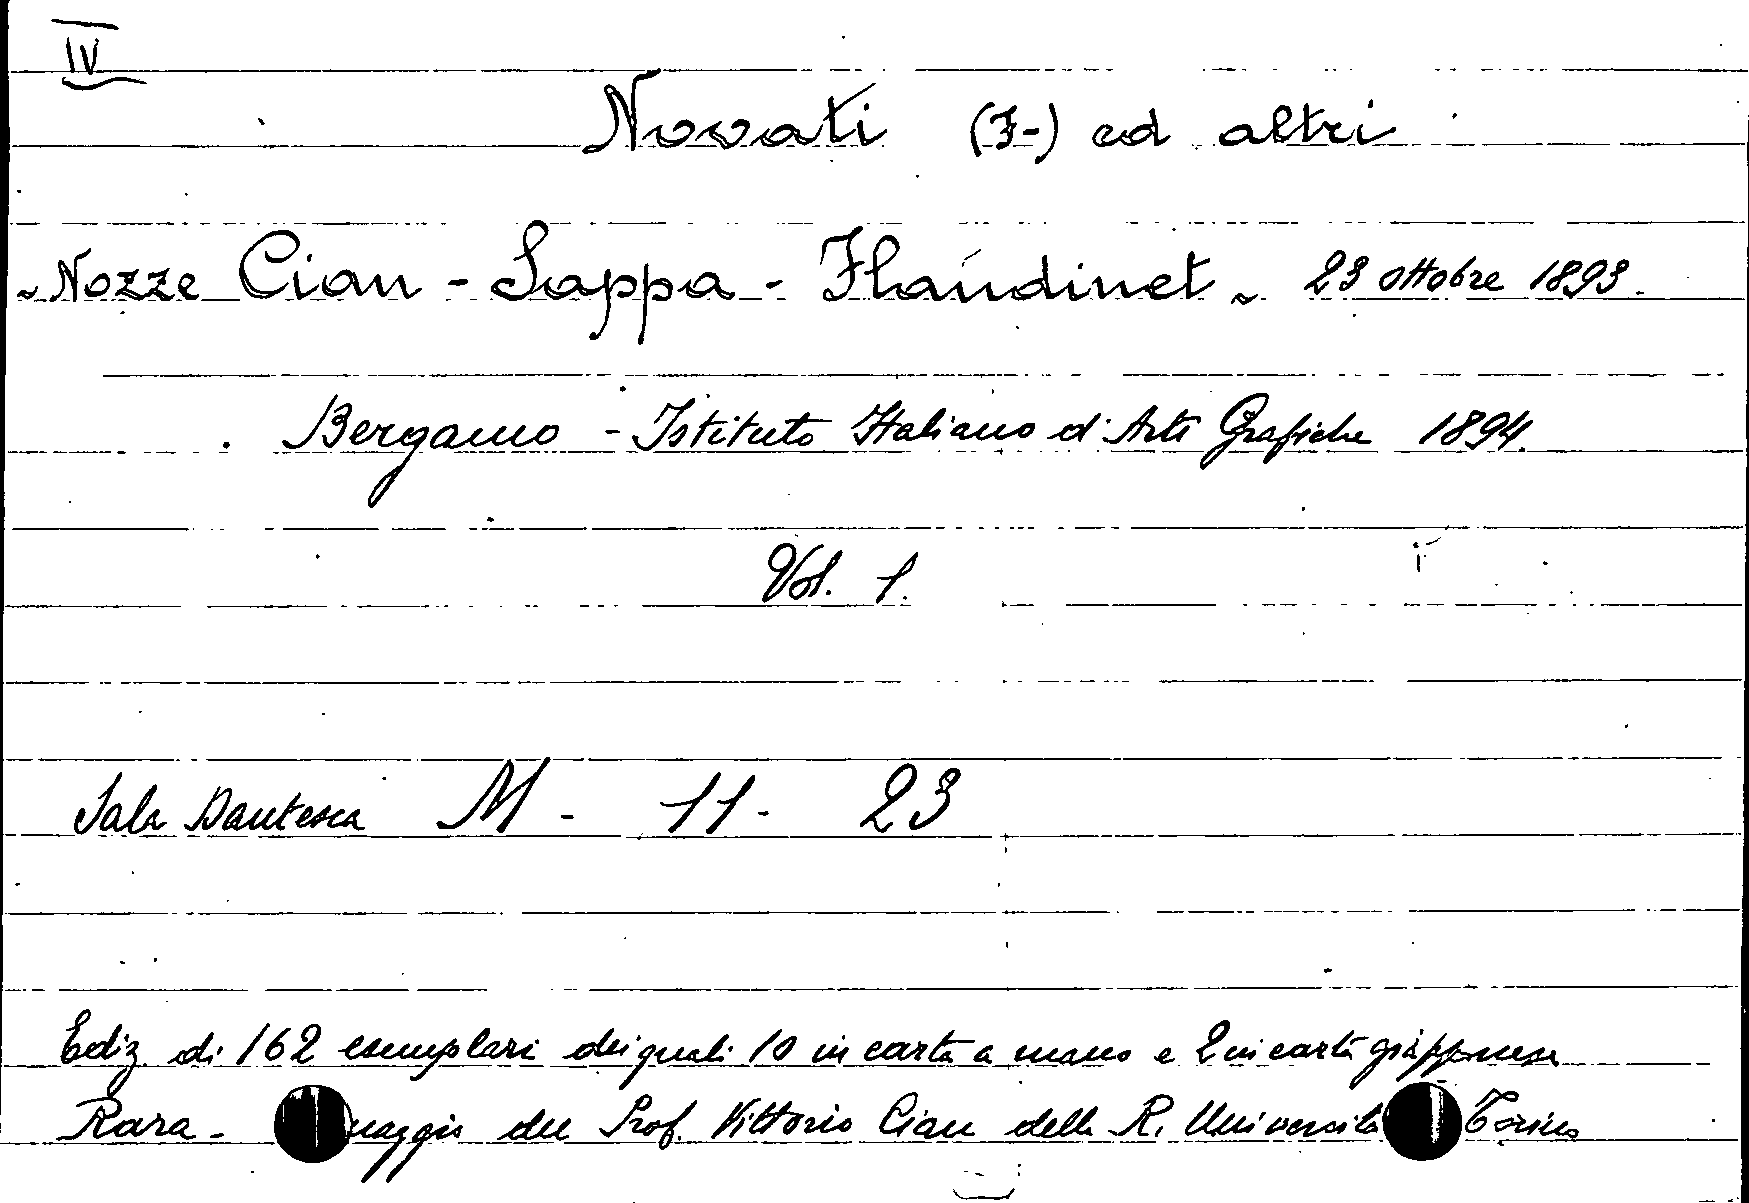 IV
Novati (F-) ed altri
~ Nozze Cian - Sappa - Flandinet ~ 23 ottobre 1893.
Bergamo - Istituto Italiano d'Arti Grafiche 1894.
Vol. 1.
Sala Dantesca M - 11 - 23
Ediz. di 162 esemplari dei quali 10 in carta a mano e 2 in carta giapponese
Rara - maggio del Prof. Vittorio Cian della R. Università Torino